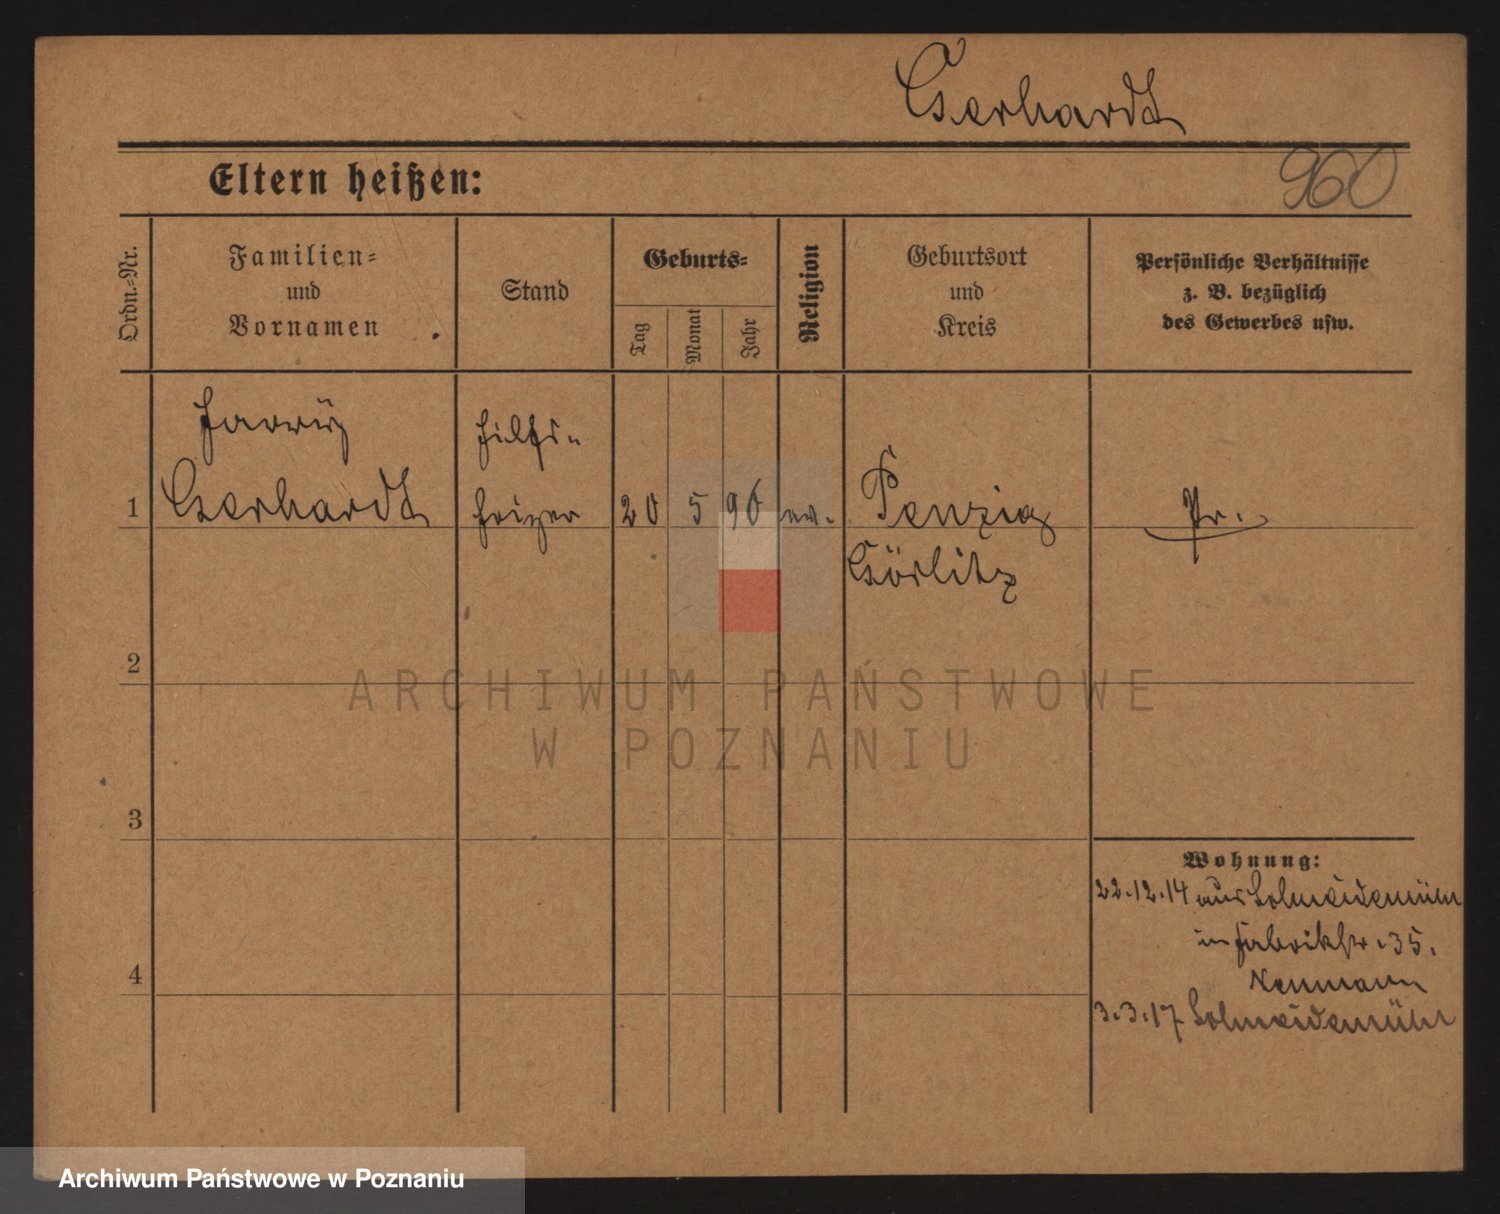 Gerhardt
960
Eltern heißen:
Ordn.-Nr.
Familien-
und
Vornamen
Stand
Geburts-
Tag
Monat
Jahr
Religion
Geburtsort
und
Kreis
Persönliche Verhältnisse
z. B. bezüglich
des Gewerbes usw.
Hilfs-
1 Gerhardt heizer 20 5 90 ev. Penzig Pr.
Görlitz
2
3
4
Wohnung:
22.12.14 aus Schneidemühl
in Fabrikstr. 35.
3.3.17 Schneidemühl
ARCHIWUM PAŃSTWOWE
W POZNANIU
Archiwum Państwowe w Poznaniu